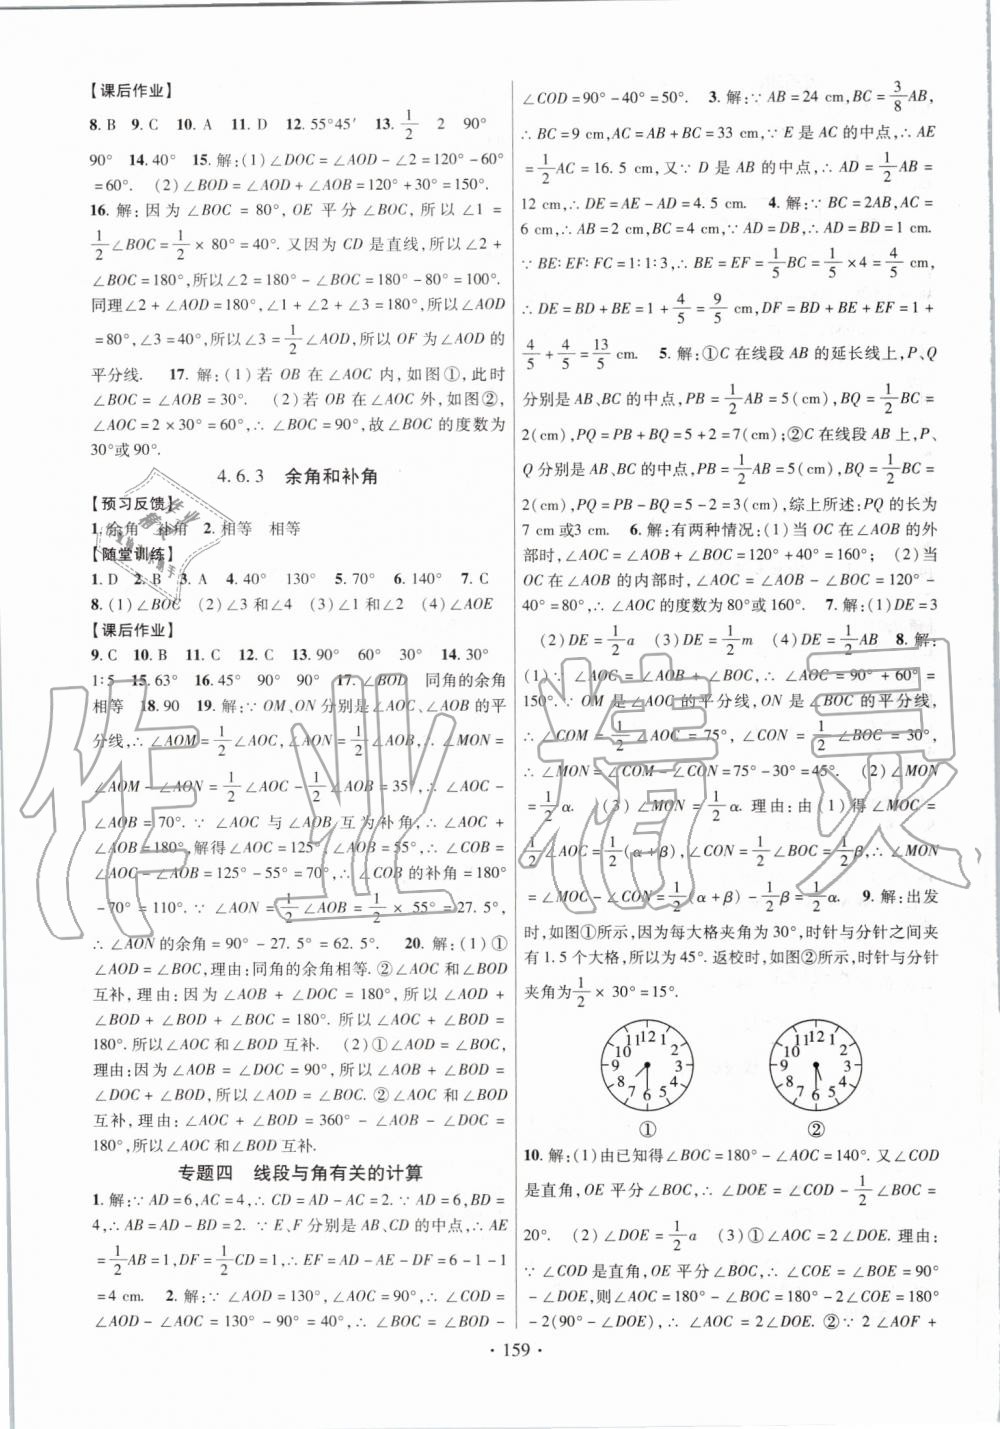 【课后作业】
8. B 9. C 10. A 11. D 12. 55°45′ 13. 1/2 2 90°
90° 14. 40° 15. 解:(1)∠DOC=∠AOD-∠2=120°-60°
=60°. (2)∠BOD=∠AOD+∠AOB=120°+30°=150°.
16. 解:因为∠BOC=80°,OE 平分∠BOC,所以∠1=
1/2∠BOC=1/2×80°=40°. 又因为 CD 是直线,所以∠2+
∠BOC=180°,所以∠2=180°-∠BOC=180°-80°=100°.
同理∠2+∠AOD=180°,∠1+∠2+∠3=180°,所以∠AOD
=80°,∠3=40°,所以∠3=1/2∠AOD,所以 OF 为∠AOD 的
平分线. 17. 解:(1)若 OB 在∠AOC 内,如图①,此时
∠BOC=∠AOB=30°. (2)若 OB 在∠AOC 外,如图②,
∠AOC=2×30°=60°,∴∠BOC=90°,故∠BOC 的度数为
30°或90°.
4.6.3 余角和补角
【预习反馈】
1. 余角 补角 2. 相等 相等
【随堂训练】
1. D 2. B 3. A 4. 40° 130° 5. 70° 6. 140° 7. C
8. (1)∠BOC (2)∠3和∠4 (3)∠1和∠2 (4)∠AOE
【课后作业】
9. C 10. B 11. C 12. C 13. 90° 60° 30° 14. 30°
1∶5 15. 63° 16. 45° 90° 90° 17. ∠BOD 同角的余角
相等 18. 90 19. 解:∵OM、ON 分别是∠AOC、∠AOB 的平
分线,∴∠AOM=1/2∠AOC,∠AON=1/2∠AOB,∴∠MON=
∠AOM-∠AON=1/2∠AOC-1/2∠AOB=35°,∴∠AOC-
∠AOB=70°. ∵∠AOC 与∠AOB 互为补角,∴∠AOC+
∠AOB=180°,解得∠AOC=125°,∠AOB=55°,∴∠COB=
∠AOC-∠AOB=125°-55°=70°,∴∠COB 的补角=180°
-70°=110°. ∵∠AON=1/2∠AOB=1/2×55°=27.5°,
∴∠AON 的余角=90°-27.5°=62.5°. 20. 解:(1)①
∠AOD=∠BOC,理由:同角的余角相等. ②∠AOC 和∠BOD
互补,理由:因为∠AOB+∠DOC=180°,所以∠AOD+
∠BOD+∠BOD+∠BOC=180°. 所以∠AOC+∠BOD=
180°. 所以∠AOC 和∠BOD 互补. (2)①∠AOD=∠BOC,
理由:因为∠AOB=∠DOC=90°,所以∠AOB+∠BOD=
∠DOC+∠BOD,所以∠AOD=∠BOC. ②∠AOC 和∠BOD
互补,理由:∠AOC+∠BOD=360°-∠AOB-∠DOC=
180°,所以∠AOC 和∠BOD 互补.
专题四 线段与角有关的计算
1. 解:∵AD=6,AC=4,∴CD=AD-AC=2. ∵AD=6,BD=
4,∴AB=AD-BD=2. ∵E、F 分别是 AB、CD 的中点,∴AE
=1/2AB=1,DF=1/2CD=1,∴EF=AD-AE-DF=6-1-1
=4 cm. 2. 解:∵∠AOD=130°,∠AOC=90°,∴∠COD=
∠AOD-∠AOC=130°-90°=40°,∴∠BOC=∠BOD-
∠COD=90°-40°=50°. 3. 解:∵AB=24 cm,BC=3/8AB,
∴BC=9 cm,AC=AB+BC=33 cm,∵E 是 AC 的中点,∴AE
=1/2AC=16.5 cm,又∵D 是 AB 的中点,∴AD=1/2AB=
12 cm,∴DE=AE-AD=4.5 cm. 4. 解:∵BC=2AB,AC=
6 cm,∴AB=2 cm,BC=4 cm,∵AD=DB,∴AD=BD=1 cm.
∵BE∶EF∶FC=1∶1∶3,∴BE=EF=1/5BC=1/5×4=4/5 cm,
∴DE=BD+BE=1+4/5=9/5 cm,DF=BD+BE+EF=1+
4/5+4/5=13/5 cm. 5. 解:①C 在线段 AB 的延长线上,P、Q
分别是 AB、BC 的中点,PB=1/2AB=5(cm),BQ=1/2BC=
2(cm),PQ=PB+BQ=5+2=7(cm);②C 在线段 AB 上,P、
Q 分别是 AB、BC 的中点,PB=1/2AB=5(cm),BQ=1/2BC=
2(cm),PQ=PB-BQ=5-2=3(cm),综上所述:PQ 的长为
7 cm 或3 cm. 6. 解:有两种情况:(1)当 OC 在∠AOB 的外
部时,∠AOC=∠AOB+∠BOC=120°+40°=160°;(2)当
OC 在∠AOB 的内部时,∠AOC=∠AOB-∠BOC=120°-
40°=80°,∴∠AOC 的度数为80°或160°. 7. 解:(1)DE=3
(2)DE=1/2a (3)DE=1/2m (4)DE=1/2AB 8. 解:
(1)∵∠AOC=∠AOB+∠BOC,∴∠AOC=90°+60°=
150°. ∵OM 是∠AOC 的平分线,ON 是∠BOC 的平分线,
∴∠COM=1/2∠AOC=75°,∠CON=1/2∠BOC=30°,
∴∠MON=∠COM-∠CON=75°-30°=45°. (2)∠MON
=1/2α. (3)∠MON=1/2α. 理由:由(1)得∠MOC=
1/2∠AOC=1/2(α+β),∠CON=1/2∠BOC=1/2β,∴∠MON
=∠MOC-∠CON=1/2(α+β)-1/2β=1/2α. 9. 解:出发
时,如图①所示,因为每大格夹角为30°,时针与分针之间夹
有1.5个大格,所以为45°. 返校时,如图②所示,时针与分针
夹角为1/2×30°=15°.
11 12 1
10 2
9 3
8 4
7 6 5
①
11 12 1
10 2
9 3
8 4
7 6 5
②
10. 解:(1)由已知得∠BOC=180°-∠AOC=140°. 又∠COD
是直角,OE 平分∠BOC,∴∠DOE=∠COD-1/2∠BOC=
20°. (2)∠DOE=1/2a (3)①∠AOC=2∠DOE. 理由:
∵∠COD 是直角,OE 平分∠BOC,∴∠COE=∠BOE=90°
-∠DOE,则∠AOC=180°-∠BOC=180°-2∠COE=180°
-2(90°-∠DOE),∴∠AOC=2∠DOE. ②∵2∠AOF+
·159·
作业精灵